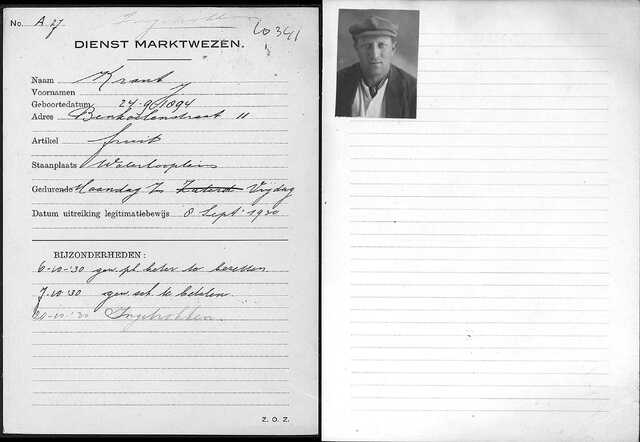 No. A 27
Ingetrokken
60341
DIENST MARKTWEZEN.
Naam Krant
Voornamen J
Geboortedatum 24-9-1894
Adres straat 11
Artikel fruit
Staanplaats Waterlooplein
Gedurende Maandag t/m Zaterd Vrijdag
Datum uitreiking legitimatiebewijs 8 Sept 1930
BIJZONDERHEDEN:
6-10-'30 gew. pl. beter te bezetten
7-10-'30 gew. sch. te betalen.
20-10-'30 Ingetrokken.
Z. O. Z.